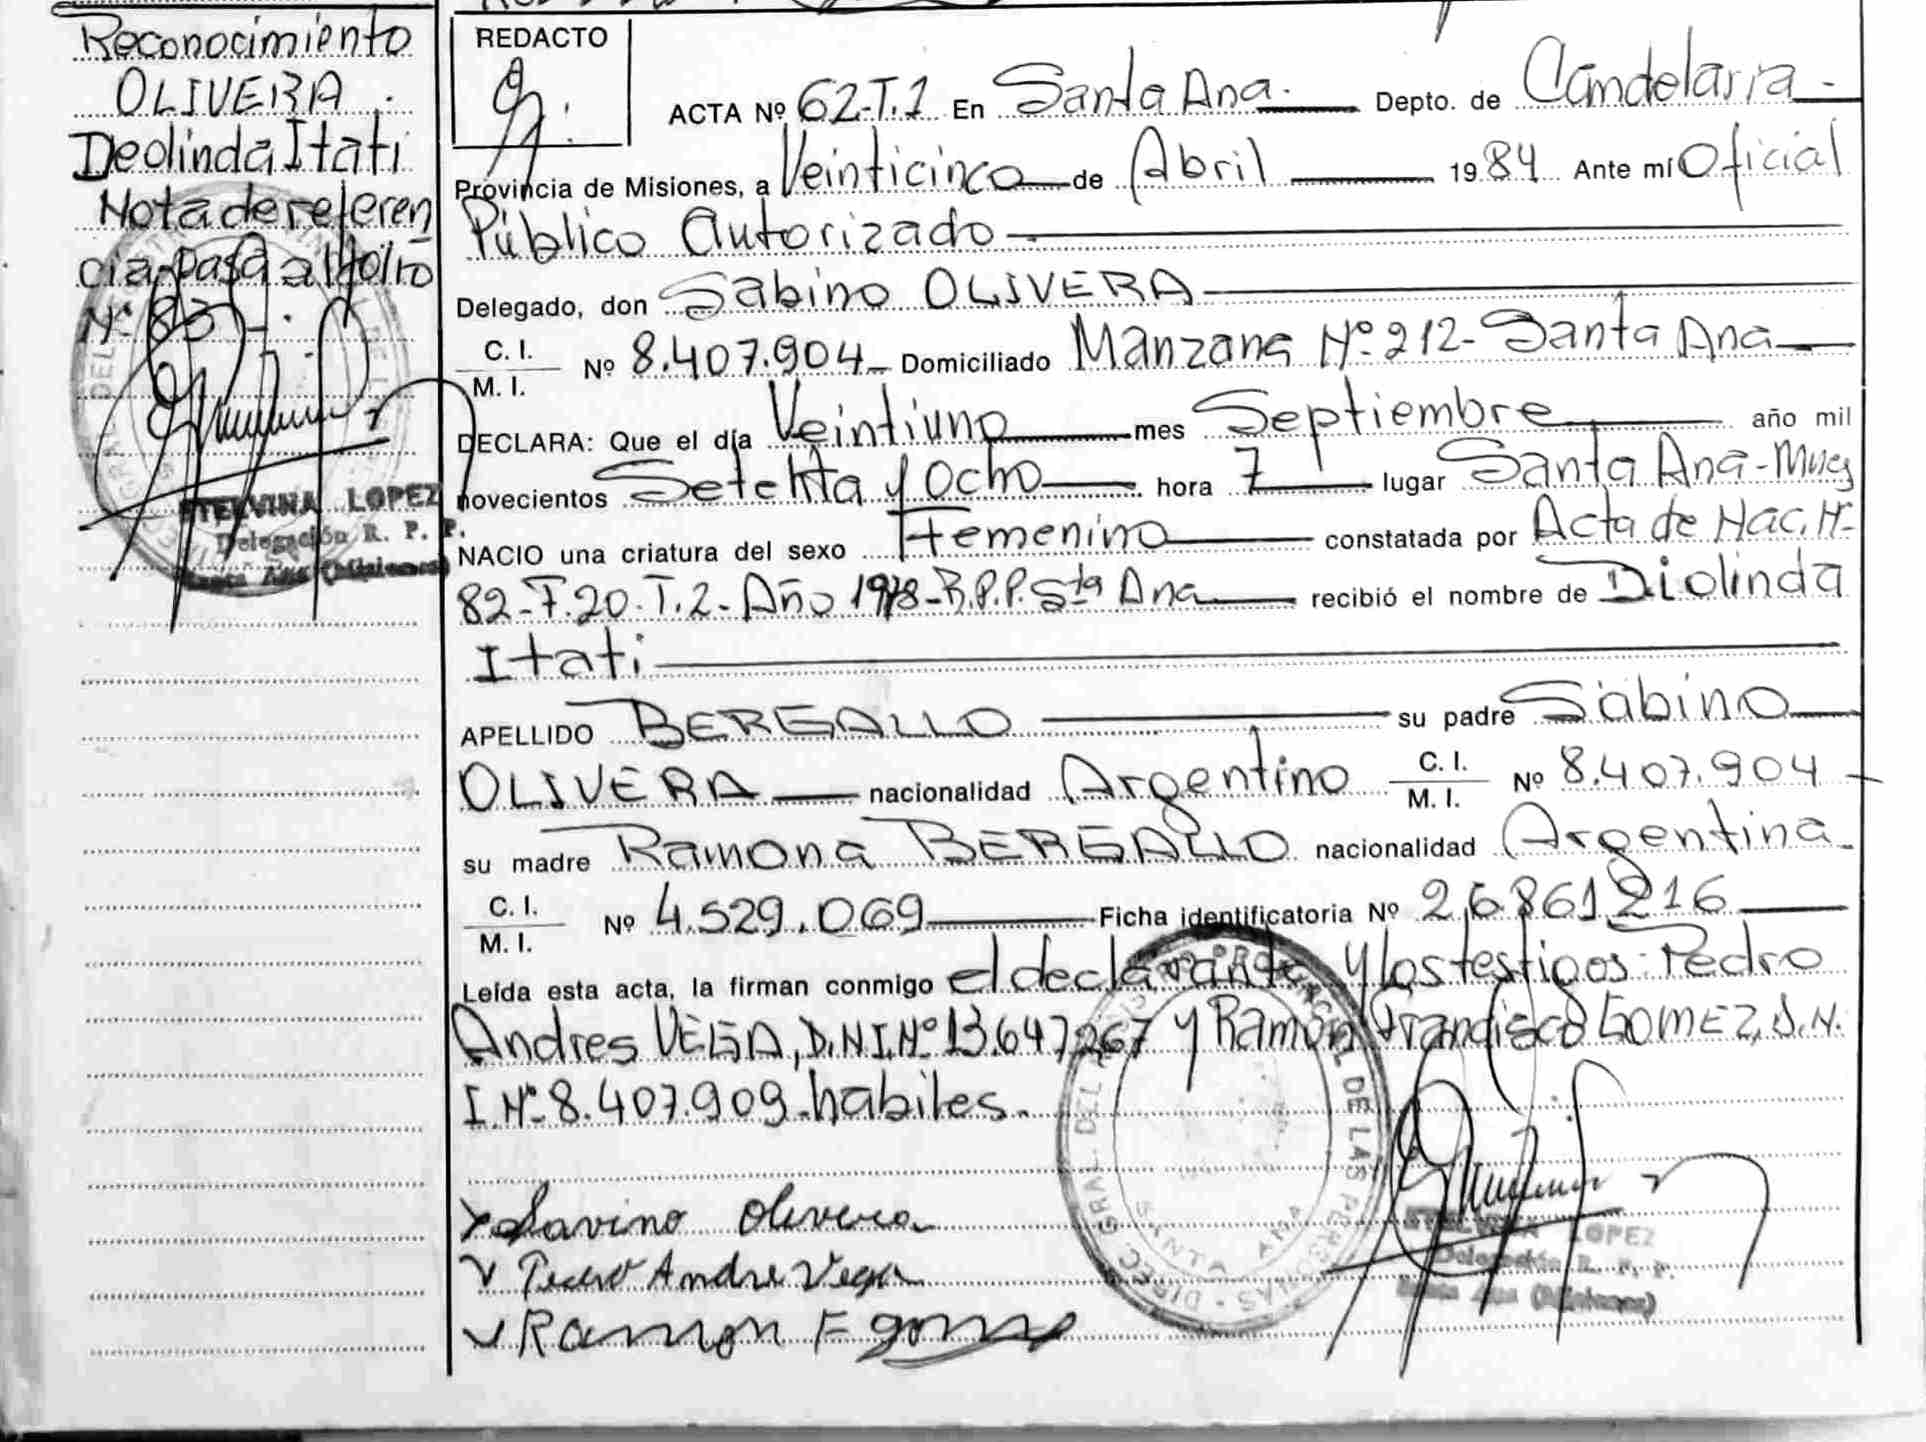 Reconocimiento
OLIVERA
Deolinda Itati
Nota de referen
cia pasa al folio
Nº 83
STELVINA LOPEZ
Delegación R. P. P.
Santa Ana (Misiones)
REDACTO
ACTA Nº 62-T.1 En Santa Ana. Depto. de Candelaria.-
Provincia de Misiones, a Veinticinco de Abril 1984 Ante mí Oficial
Público Autorizado
Delegado, don Sabino OLIVERA
C. I. / M. I. Nº 8.407.904 Domiciliado Manzana Nº 212- Santa Ana
DECLARA: Que el día Veintiuno mes Septiembre año mil
novecientos Setenta y Ocho hora 7 lugar Santa Ana-Mnes
NACIO una criatura del sexo Femenino constatada por Acta de Nac. Nº
82-F.20-T.2-Año 1978-R.P.P. Sta Ana recibió el nombre de Diolinda
Itati
APELLIDO BERGALLO su padre Sabino
OLIVERA nacionalidad Argentino C. I. / M. I. Nº 8.407.904
su madre Ramona BERGALLO nacionalidad Argentina
C. I. / M. I. Nº 4.529.069 Ficha identificatoria Nº 26861216
Leída esta acta, la firman conmigo el declarante y los testigos: Pedro
Andres VEGA, D.N.I.Nº 13.647267 y Ramón Francisco GOMEZ, D.N.
I.Nº 8.407.909-habiles.
Savino Olivera
Pedro Andre Vega
Ramon F gomes
DIREC. GRAL. DEL REGISTRO PROVINCIAL DE LAS PERSONAS
SANTA ANA
STELVINA LOPEZ
Delegación R. P. P.
Santa Ana (Misiones)